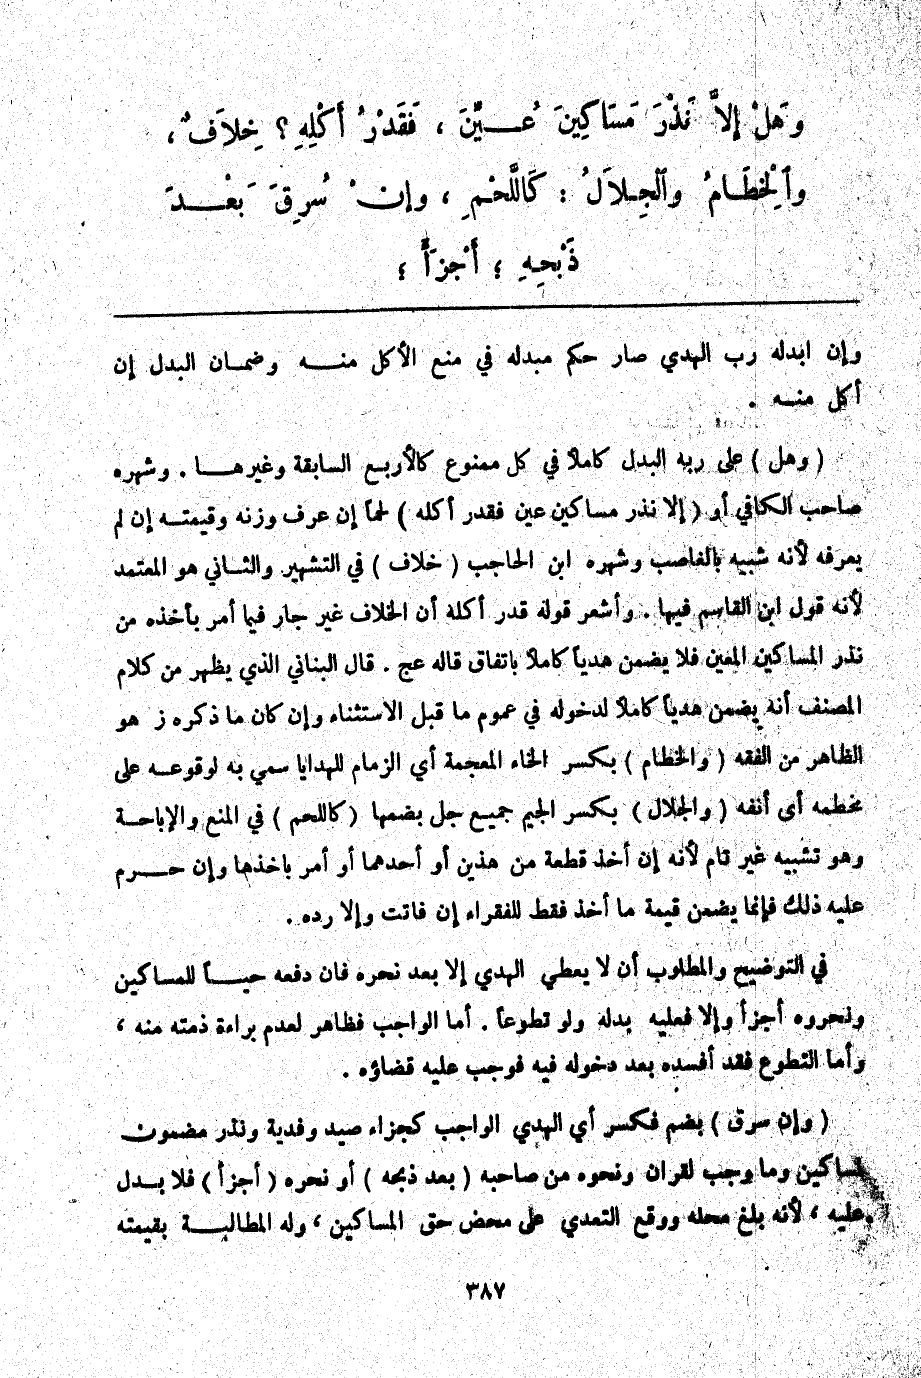 وَهَلْ إلاَّ نَذْرَ مَسَاكِينَ عُـــيِّنَ ، فَقَدْرُ أَكْلِهِ ؟ خِلاَفٌ ،
وَٱلْخِطَـامُ وٱلْجِـلاَلُ : كَاللَّحْمِ ، وإنْ سُرِقَ بَعْـــدَ
ذَبْحِـهِ ؛ أَجْزَأَ ؛
وإن ابدله رب الهدي صار حكم مبدله في منع الأكل منـــه وضمـان البدل إن
أكل منـه .
( وهل ) على ربه البدل كاملاً في كل ممنوع كالأربـع السابقة وغيرهـــا . وشهره
صاحب الكافي أو ( إلا نذر مساكين عين فقدر أكله ) لحماً إن عرف وزنه وقيمتــه إن لم
يعرفه لأنه شبيه بالغاصب وشهره ابن الحاجب ( خلاف ) في التشهير والثــاني هو المعتمد
لأنه قول ابن القاسم فيها . وأشعر قوله قدر أكلة أن الخلاف غير جار فيما أمر بأخذه من
نذر المساكين المعين فلا يضمن هدياً كاملاً باتفاق قاله عج . قال البناني الذي يظهر من كلام
المصنف أنه يضمن هدياً كاملاً لدخوله في عموم ما قبل الاستثناء وإن كان ما ذكره ز هو
الظاهر من الفقه ( والخطام ) بـكسر الخاء المعجمة أي الزمام للهدايا سمي به لوقوعــه على
مخطمه أي أنفه ( والجلال ) بـكسر الجيم جميـع جل بضمها ( كاللحم ) في المنع والإباحـة
وهو تشبيه غير تام لأنه إن أخذ قطعة من هذين أو أحدهما أو أمر باخذها وإن حـــرم
عليه ذلك فإنما يضمن قيمة ما أخذ فقط للفقراء إن فاتت وإلا رده .
في التوضيح والمطلوب أن لا يعطي الهدي إلا بعد نحره فان دفعه حيــــاً للمساكين
ونحروه أجزأ وإلا فعليه بدله ولو تطوعاً . أما الواجب فظاهر لعدم براءة ذمته منه ،
وأما التطوع فقد أفسده بعد دخوله فيه فوجب عليه قضاؤه .
( وإن سرق ) بضم فكسر أي الهدي الواجب كجزاء صيد وفدية ونذر مضمون
لمساكين وما وجب لقران ونحوه من صاحبه ( بعد ذبحه ) أو نحره ( أجزأ ) فلا بــدل
عليه ، لأنه بلغ محله ووقع التعدي على محض حق المساكين ، وله المطالبـــة بقيمته
٣٨٧